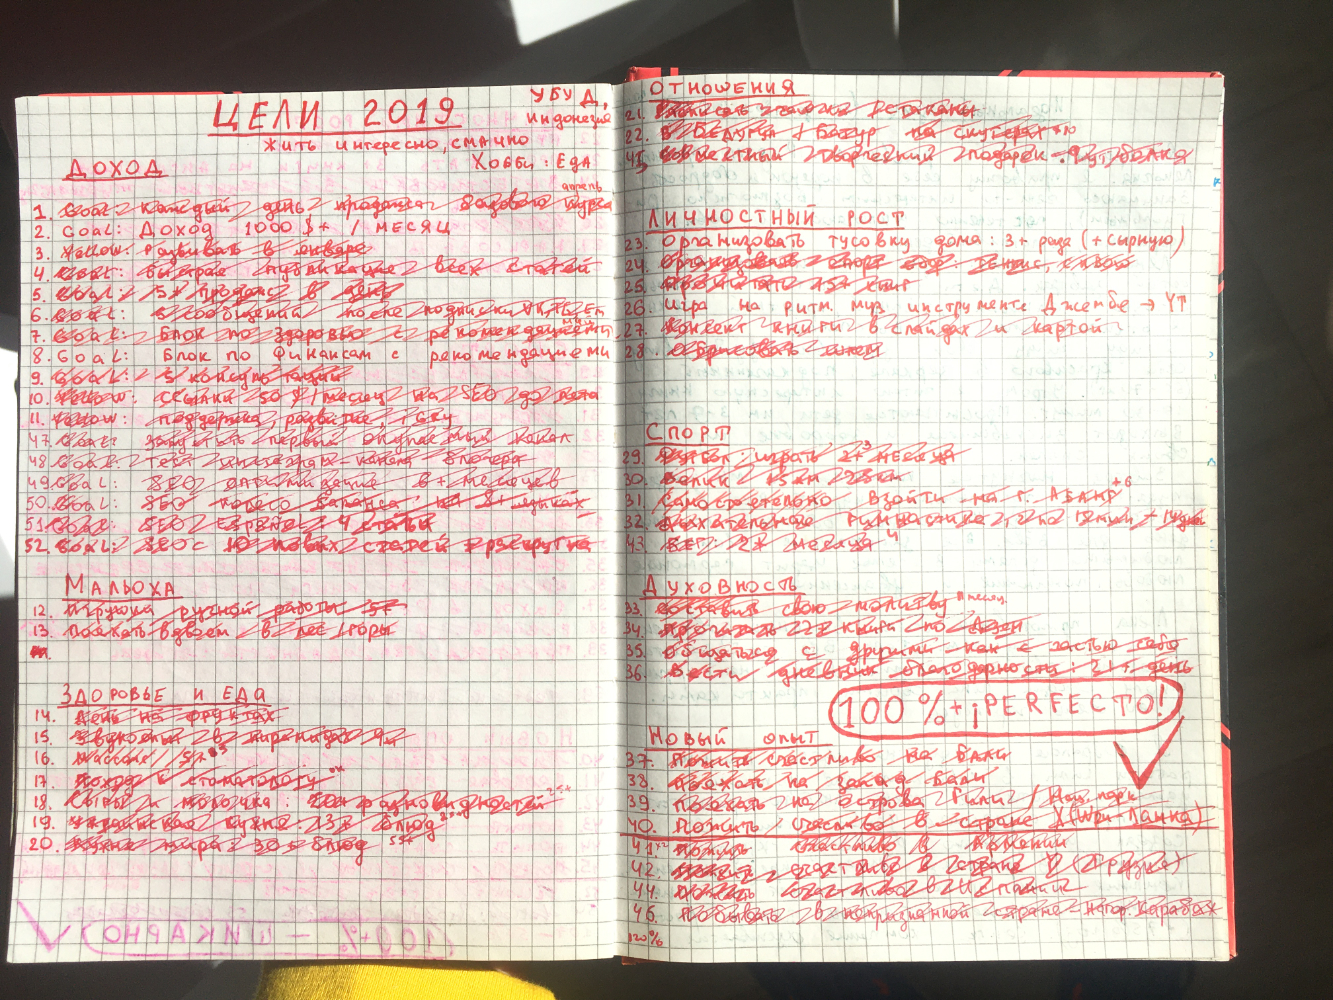 ЦЕЛИ 2019
УБУД,
Индонезия
жить интересно, смачно
Хобби: Еда
ДОХОД
апрель
1. Goal: каждый день продажа базового курса
2. Goal: Доход 1000 $+ / месяц
3. Yellow: развивать в январе
4. Goal: публикация всех статей
5. Goal: 5+ продаж в день
6. Goal: 5 сообщений после подписки
7. Goal: Блок по Здоровью с рекомендациями
8. Goal: Блок по Финансам с рекомендациями
9. Goal: 5 консультаций
10. Yellow: ссылки 50 $/месяц на SEO до лета
11. Yellow: поддержка, развитие,
47. Goal: запустить первый окупаемый канал
48. Goal: тест блогера
49. Goal: SEO оптимизация 8+ месяцев
50. Goal: SEO колесо баланса на 8+ языках
51. Goal: SEO 4 статьи
52. Goal: SEO с 10 новых статей
МАЛЬОХА
12. Игрушка ручной работы 5+
13. Поехать вдвоем в лес/горы
ЗДОРОВЬЕ И ЕДА
14. День на фруктах
15. Звукотый в пирамиде
16. Массаж 5+
17. Поход к стоматологу ок
18. Сыры и молочка: 20+ разновидностей 25+
19. кухня: 13+ блюд
20. Кухня мира: 30+ блюд 55+
100+% - ШИКАРНО
ОТНОШЕНИЯ
21.
22. в Бедугул + Батур на скутерах
41. Совместный творческий подарок: Футболка
ЛИЧНОСТНЫЙ РОСТ
23. Организовать тусовку дома: 3+ раза (+сырную)
24. Организовать спорт теннис, сквош
25. Прочитать 15+ книг
26. Игра на ритм. муз инструменте Джембе → YT
27. Конспект книги в слайдах и картой
28.
СПОРТ
29. Футбол: играть 2+ месяца
30. Велик 15 км 25км
31. Самостоятельно взойти на г. Абанг +6
32. Дыхательной гимнастика,
43. Бег: 2+ месяца 4
ДУХОВНОСТЬ
33. Составить свою молитву
34. Прочитать 22+ книги по Дзен
35. Общаться с другими как с частью себя
36. Вести дневник благодарности: 21+ день
100%+ ¡PERFECTO!
НОВЫЙ ОПЫТ
37. Пожить счастливо на Бали
38. Поехать на запад Бали
39. Поехать на острова Гили / Нац. парк
40. Пожить счастливо в стране X (Шри-Ланка)
41. пожить счастливо в Армении
42. Пожить счастливо в стране Y (Грузия)
44. Пожить счастливо в Испании
46. Побывать в непризнанной стране Нагор. Карабах
120%